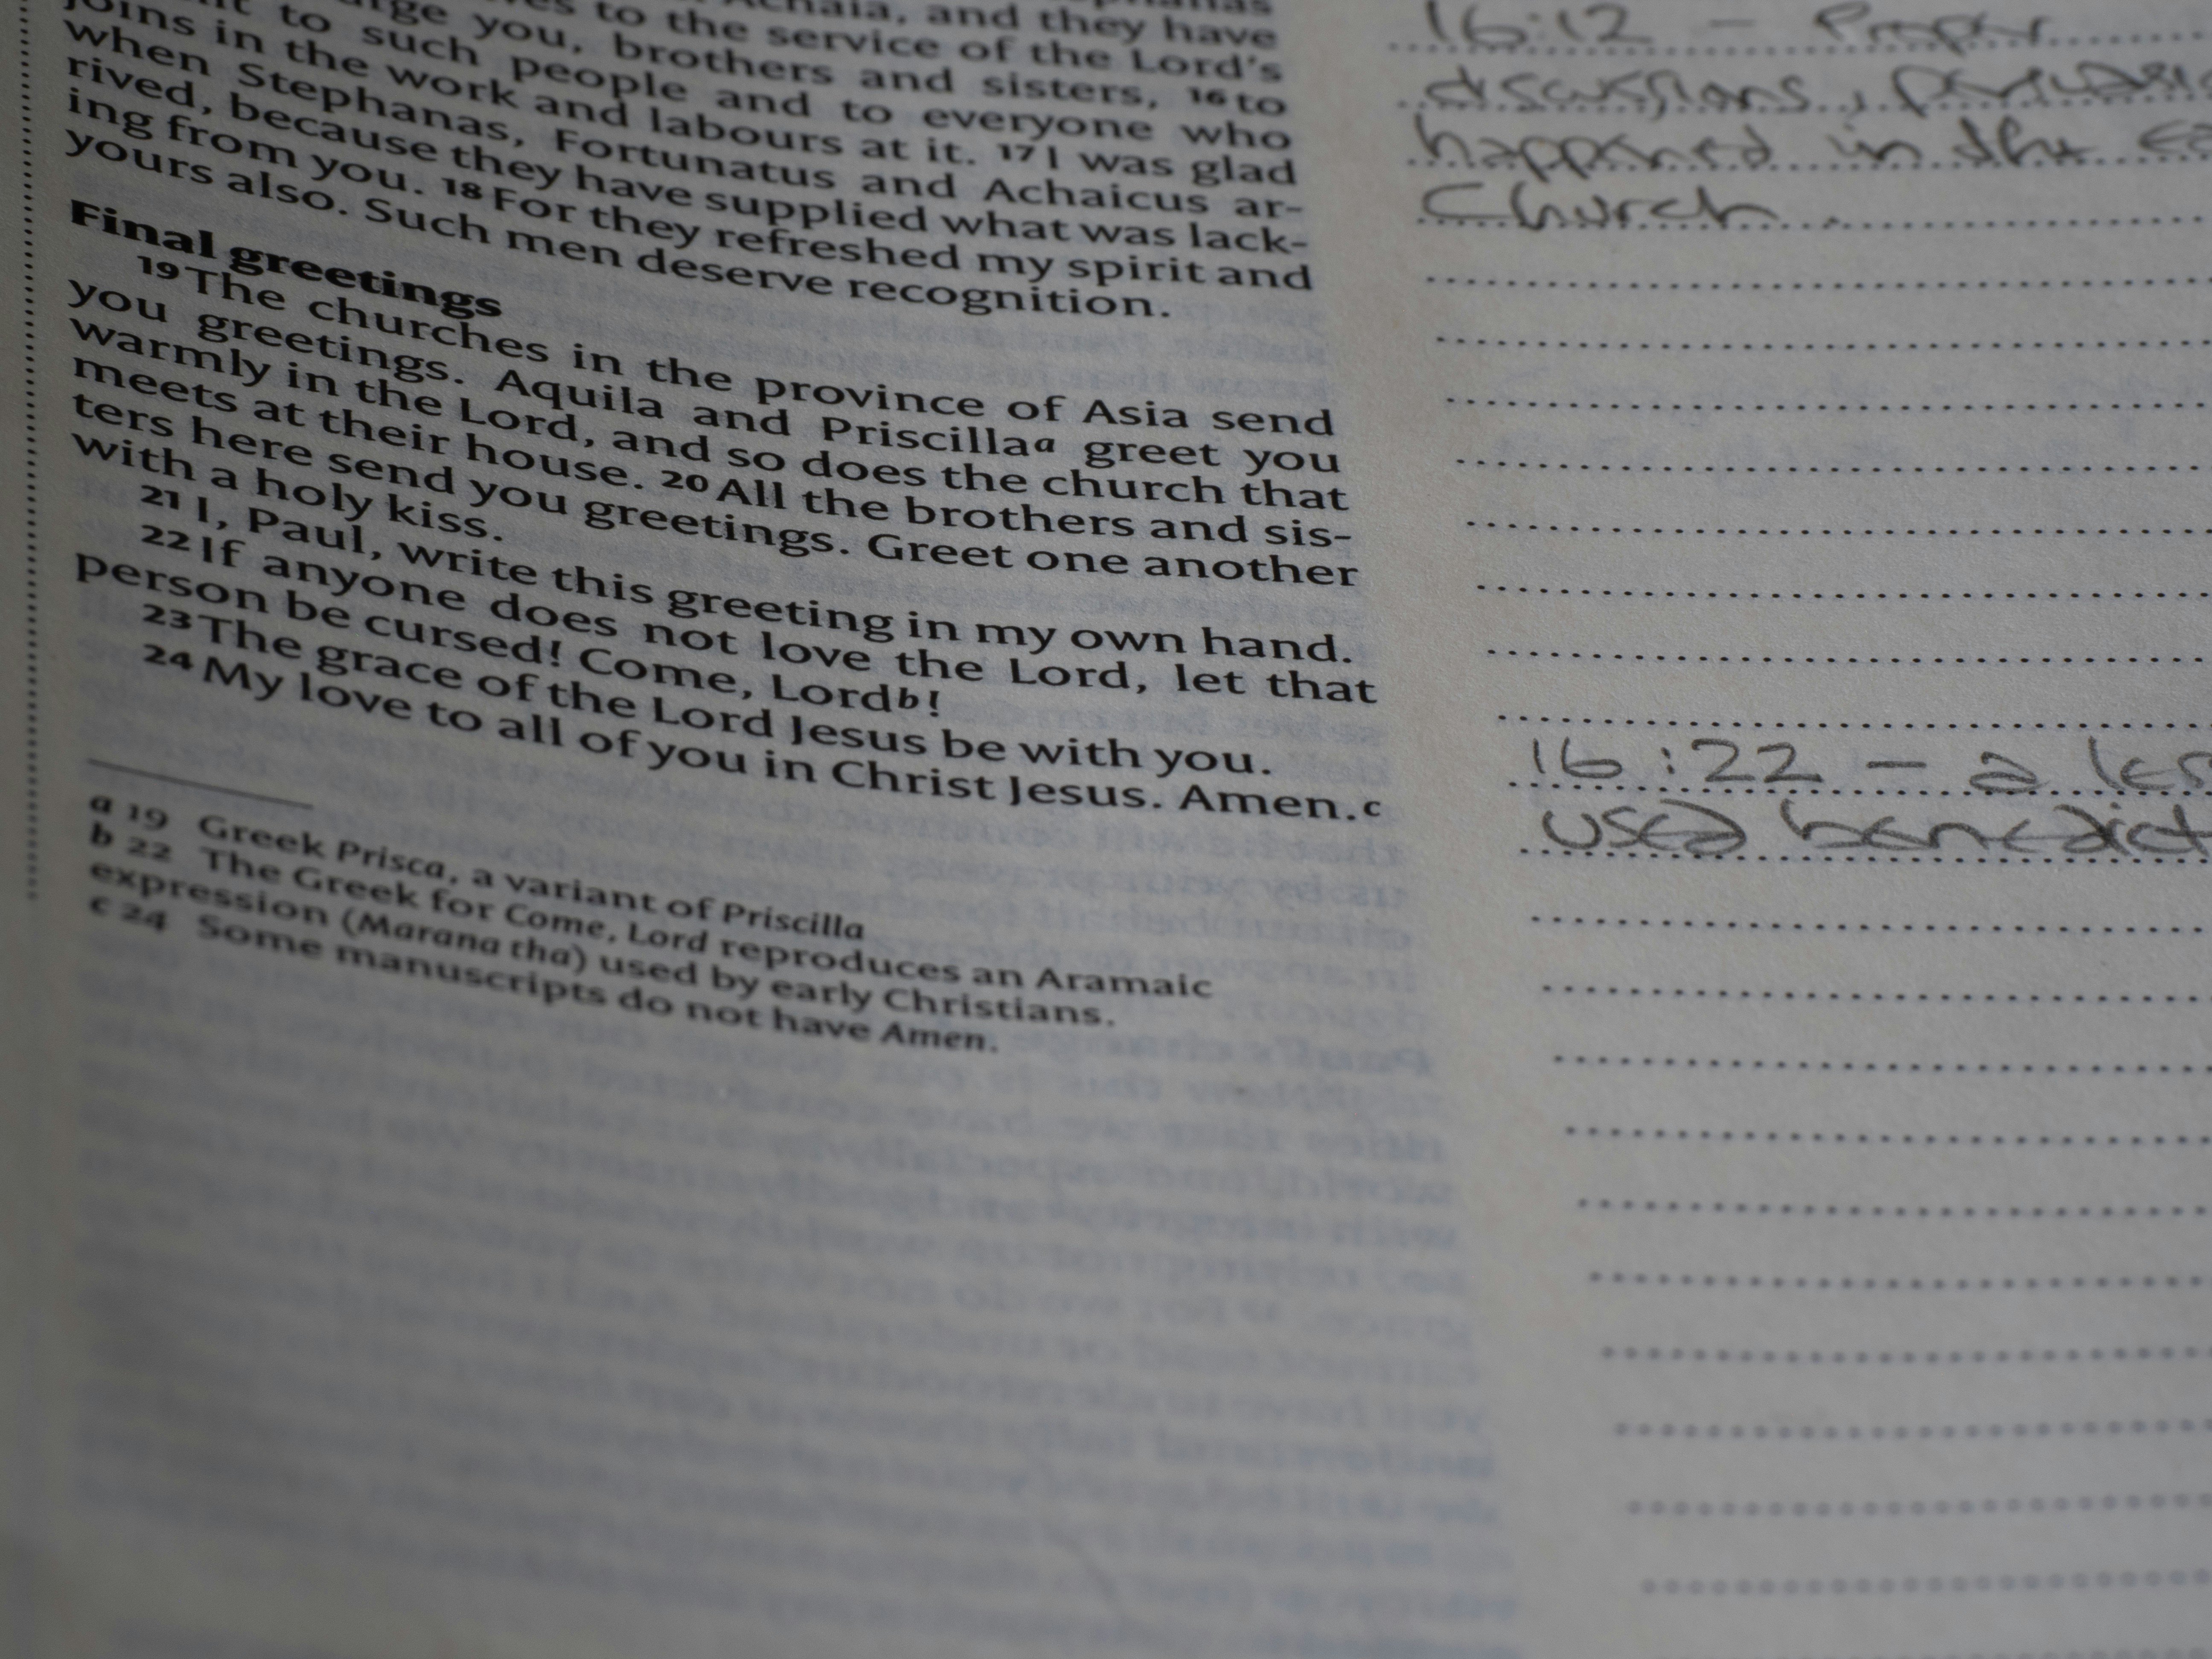 Achaia, and they have
you, brothers to the service of the Lord's
to such people and sisters, 16 to
joins in the work and to everyone who
when Stephanas, and labours at it. 17 I was glad
rived, because Fortunatus and Achaicus ar-
ing from you. 18 they have supplied what was lack-
yours also. Such For they refreshed my spirit and
men deserve recognition.
Final greetings
19 The churches in the province of Asia send
you greetings. Aquila and Priscilla a greet you
warmly in the Lord, and so does the church that
meets at their house. 20 All the brothers and sis-
ters here send you greetings. Greet one another
with a holy kiss.
21 I, Paul, write this greeting in my own hand.
22 If anyone does not love the Lord, let that
person be cursed! Come, Lord b!
23 The grace of the Lord Jesus be with you.
24 My love to all of you in Christ Jesus. Amen. c
a 19 Greek Prisca, a variant of Priscilla
b 22 The Greek for Come, Lord reproduces an Aramaic
expression (Marana tha) used by early Christians.
c 24 Some manuscripts do not have Amen.
16:12 - Proper
discussions,
happened in the
Church.
16:22 - a
used